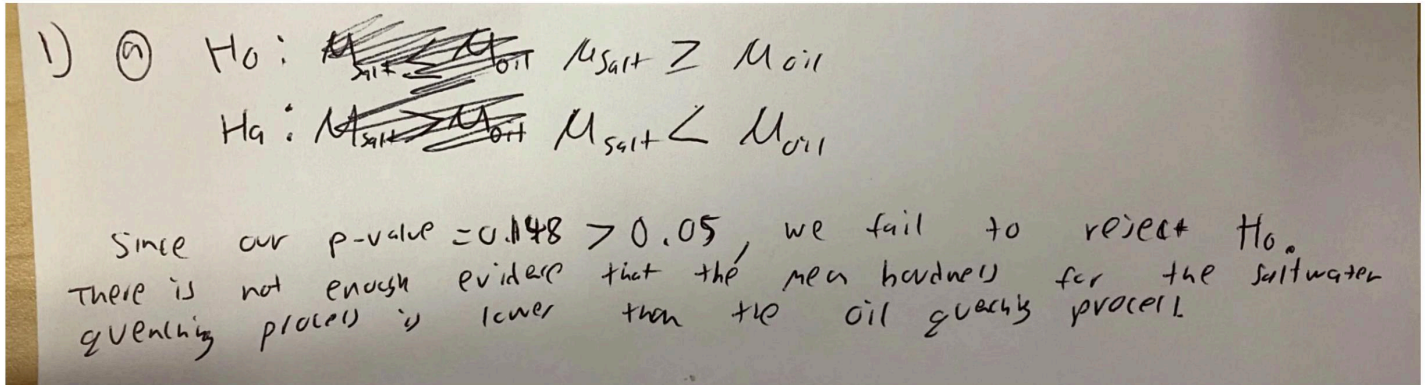 1) ⓐ Ho: μsalt ≥ μoil
Ha: μsalt < μoil
Since our p-value = 0.148 > 0.05, we fail to reject Ho.
There is not enough evidence that the mean hardness for the saltwater
quenching process is lower than the oil quenching process.